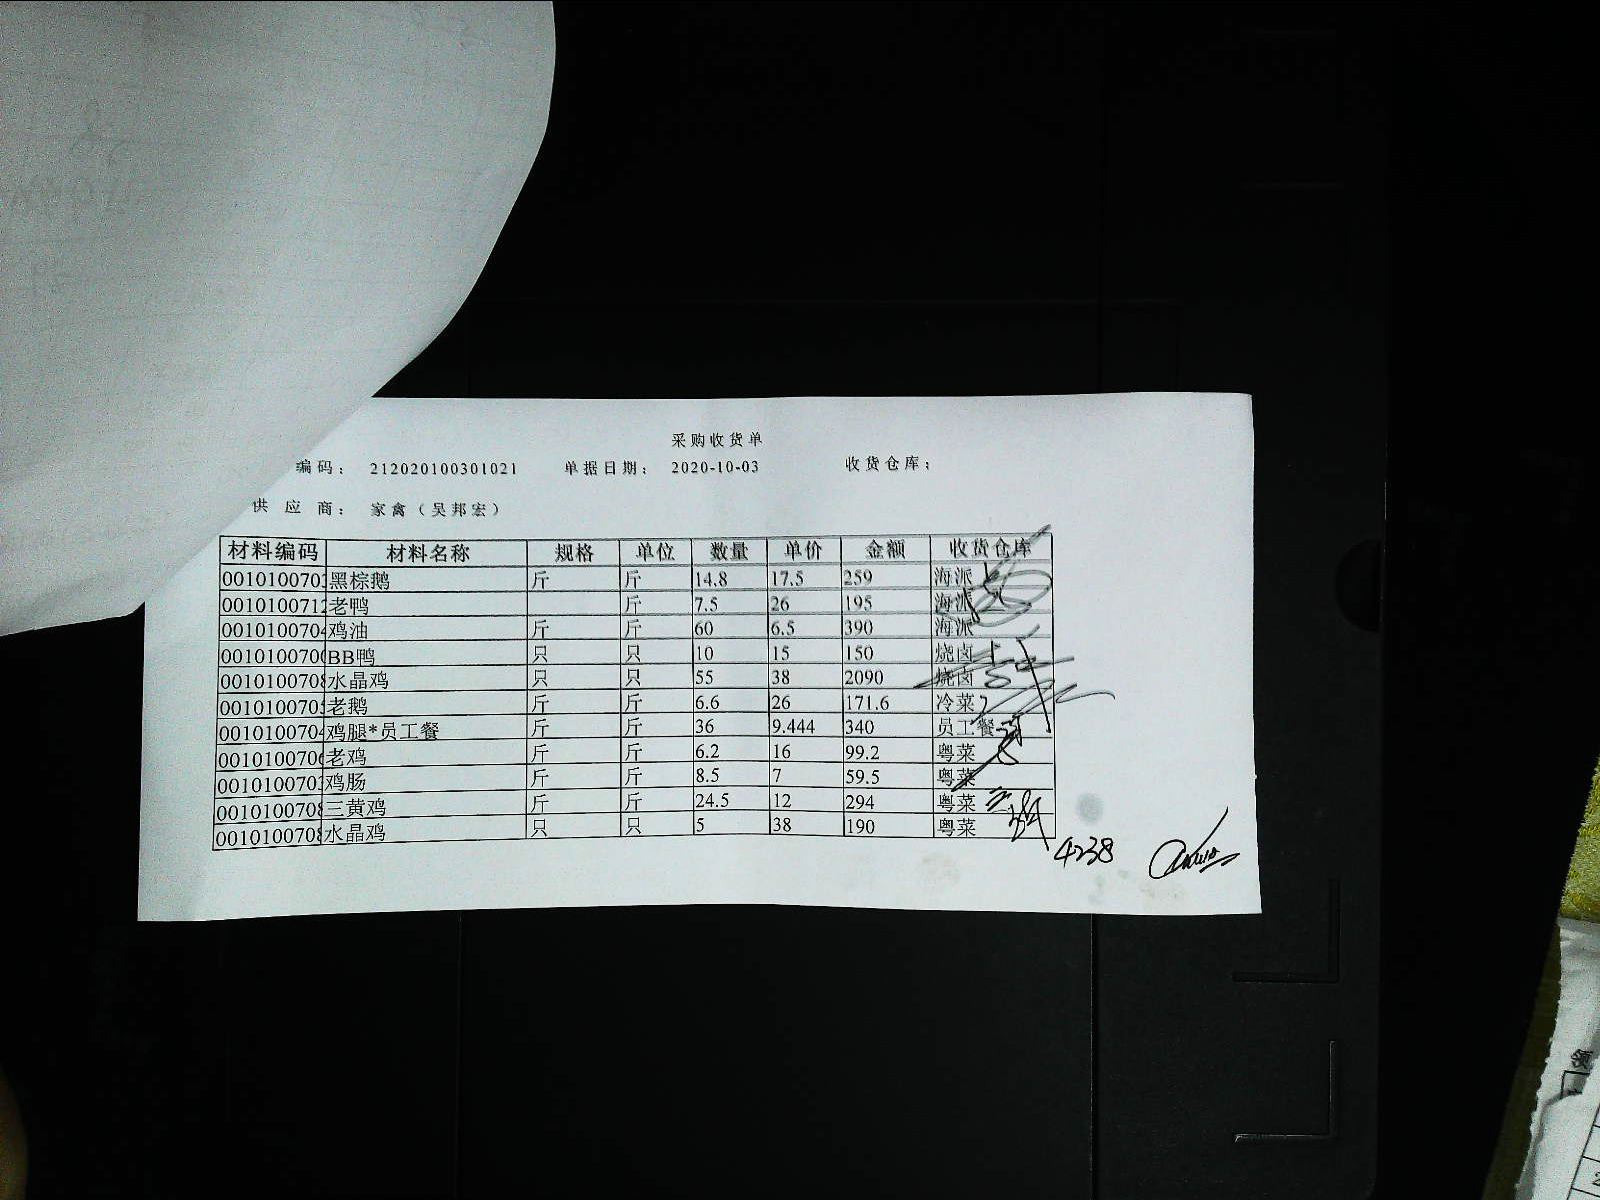 采购收货单
编码： 212020100301021 单据日期： 2020-10-03 收货仓库：
供应商： 家禽（吴邦宏）
材料编码 材料名称 规格 单位 数量 单价 金额 收货仓库
0010100703 黑棕鹅 斤 斤 14.8 17.5 259 海派
0010100712 老鸭 斤 7.5 26 195 海派
0010100704 鸡油 斤 斤 60 6.5 390 海派
0010100700 BB鸭 只 只 10 15 150 烧卤
0010100708 水晶鸡 只 只 55 38 2090 烧卤
0010100705 老鹅 斤 斤 6.6 26 171.6 冷菜
0010100704 鸡腿*员工餐 斤 斤 36 9.444 340 员工餐
0010100706 老鸡 斤 斤 6.2 16 99.2 粤菜
0010100703 鸡肠 斤 斤 8.5 7 59.5 粤菜
0010100708 三黄鸡 斤 斤 24.5 12 294 粤菜
0010100708 水晶鸡 只 只 5 38 190 粤菜
4238